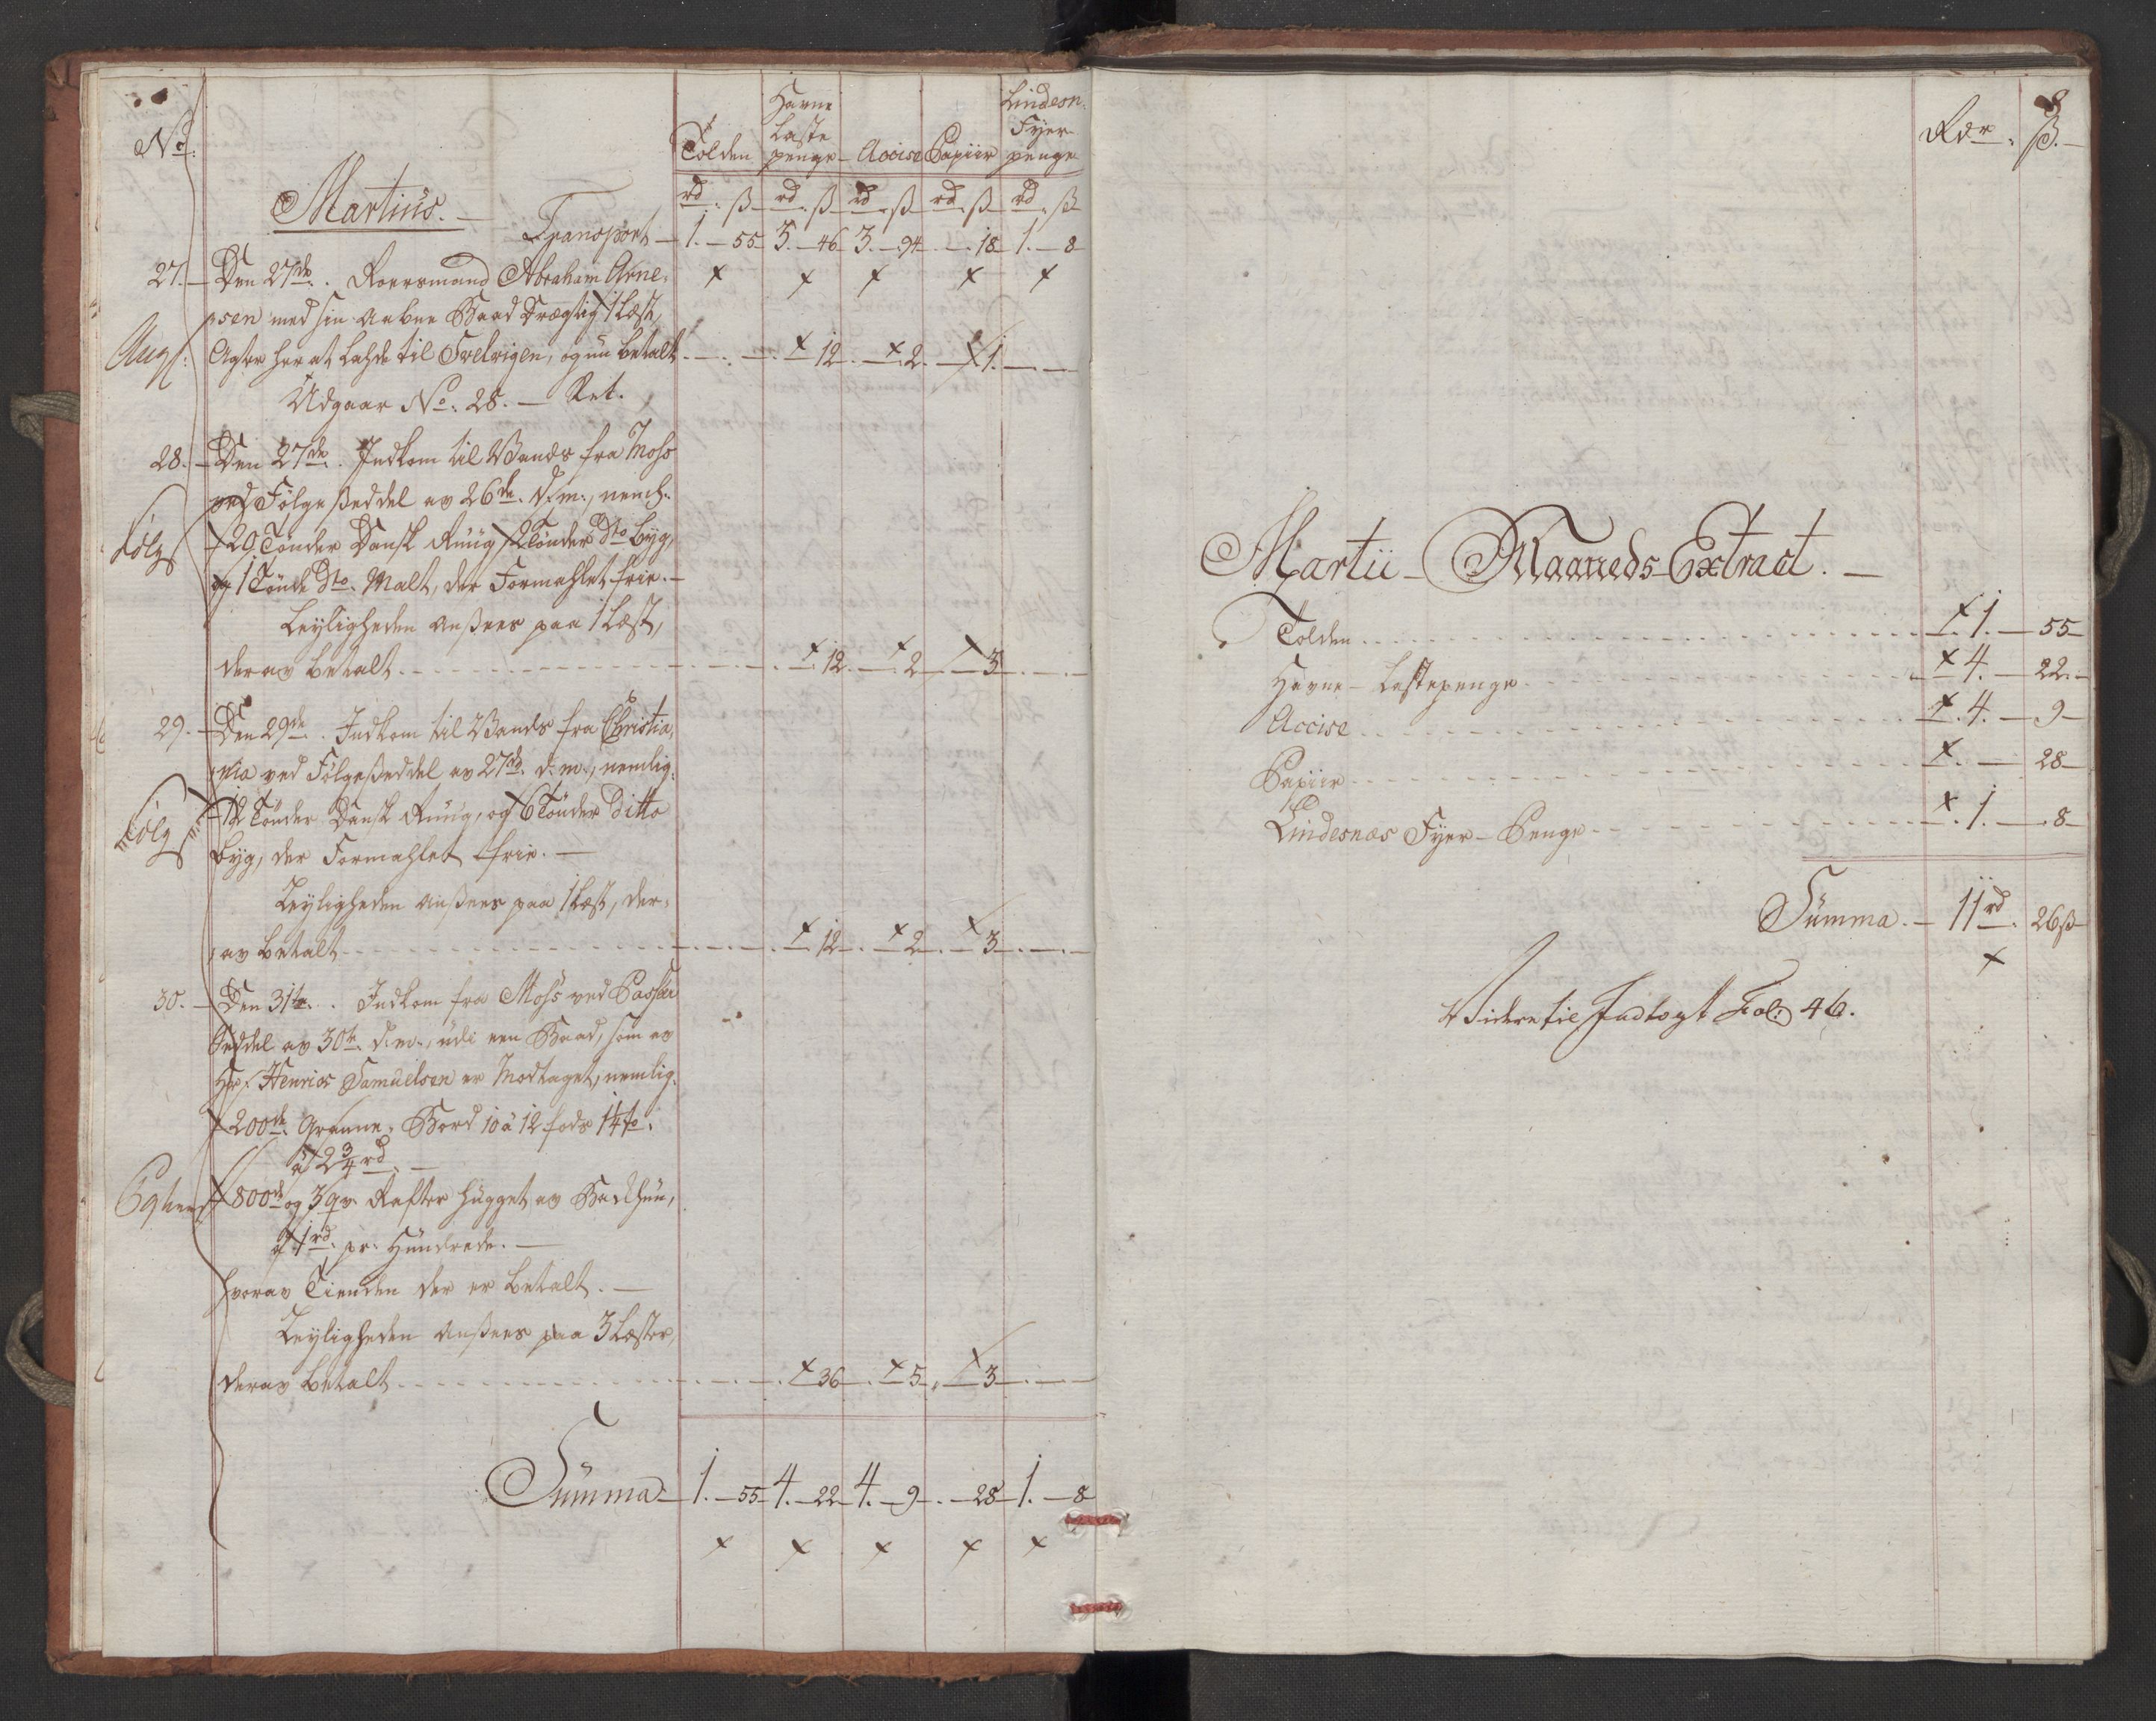 No.
Tolden
Havne
Laste
penge
Accise
Papiir
Lindesn.
Fyer
penge
rd. ß rd. ß rd. ß rd. ß rd. ß
Martius.
Transport 1. 55 5. 46 3. 94 . 18 1. 8
27. Den 27de. Roersmand Abraham Arne-
sen med sin aabne Baad Drægtig 1 Læst,
agter her at lahde til Svelvigen, og nu betalt . 12 . 2 . 1.
Udgaar No. 28. Ret.
28. Den 27de. Indkom til Vands fra Moss
ved Følge Seddel av 26de. d. m., neml.
29 Tønder Dansk Ruug, 2 Tønder Dto Byg,
og 1 Tønde Dto. Malt, der Formahlet frie.
Leyligheden ansees paa 1 Læst,
derav betalt . 12. 2. 3
29. Den 29de. Indkom til Vands fra Christia-
nia ved Følgeseddel av 27de. d. m., nemlig.
12 Tønder Dansk Ruug, og 6 Tønder Ditto
Byg, der Formahlet frie.
Leyligheden ansees paa 1 Læst, der-
av betalt . 12. 2. 3
30. Den 31te. Indkom fra Moss ved Passeer
Seddel av 30te. d. m., udi een Baad, som av
Hr. Henrich Samuelsen er Modtaget, nemlig.
200de. Granne Bord 10 a 12 fods 1¼ to.
a 2¾ rd.
800de og 3 qv. Rafter hugget av Backhun,
a 1 rd. pr. Hundrede.
hvorav Tienden der er betalt.
Leyligheden ansees paa 3 Læster,
derav betalt . 36. 5. 3
Summa 1. 55 4. 22 4. 9 . 28 1. 8
Rdr. ß.
8
Martii Maaneds-Extract.
Tolden 1. 55
Havne- Lastepenge 4. 22.
Accise 4. 9
Papiir . 28
Lindesnæs Fyer-Penge 1. 8
Summa. 11 rd. 26 ß
Videre til Indtægt Fol. 46.